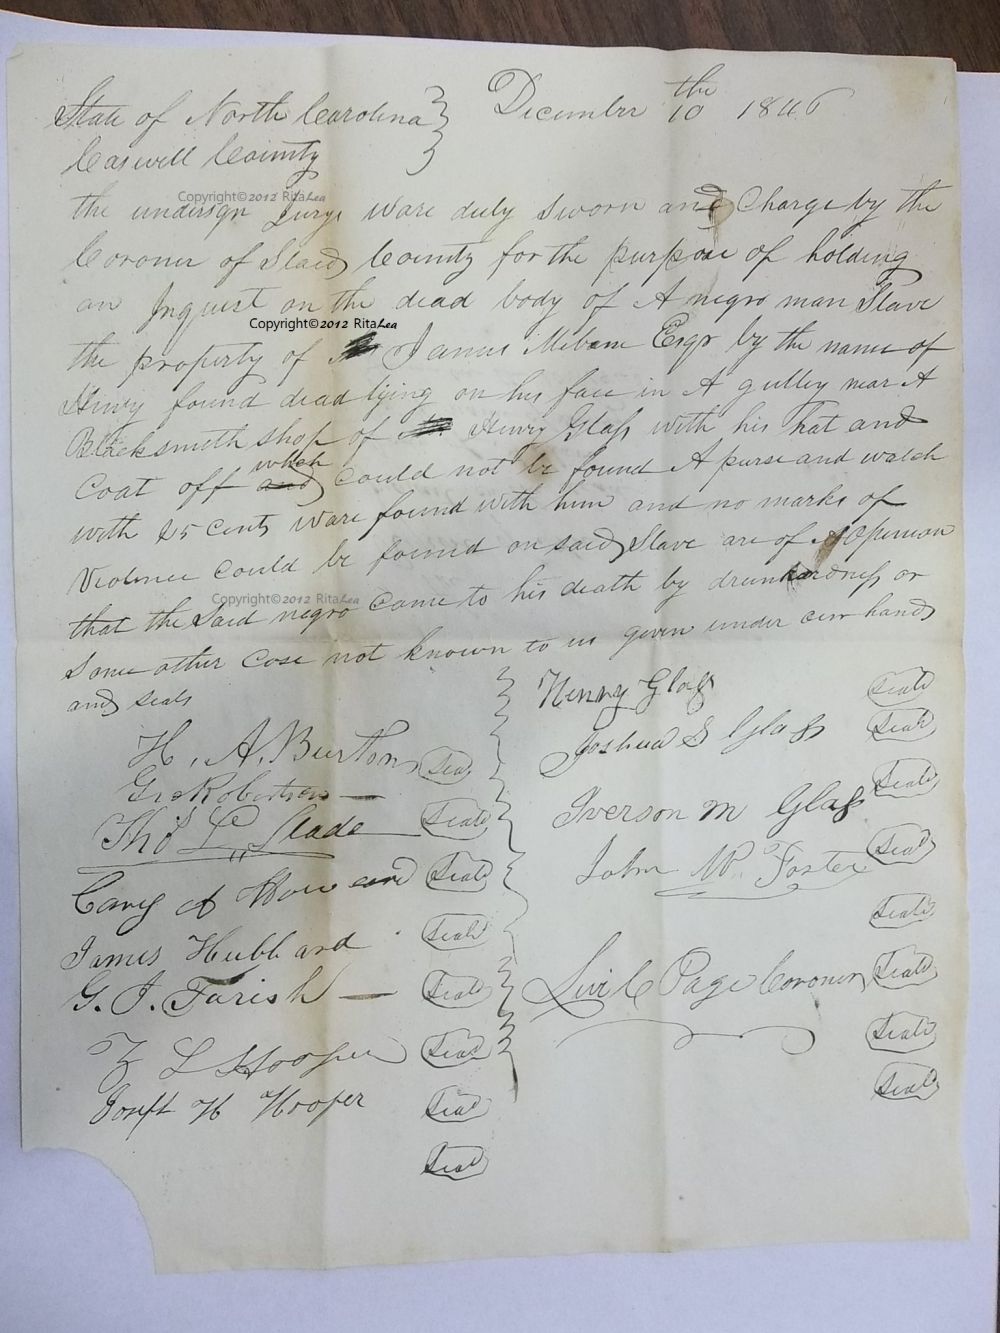 State of North Carolina } December 10 the 1846
Caswell County
Copyright©2012 RitaLea
the undersign Jurys ware duly sworn and Charge by the
Coroner of Slaid County for the purpose of holding
an Inquest on the dead body of A negro man Slave
Copyright©2012 RitaLea
the property of James Mebane Esqr by the name of
Henry found dead lying on his face in A gulley near A
Blacksmith shop of Henry Glass with his hat and
Coat off which could not be found A purse and watch
with 25 cents ware found with him and no marks of
Violence could be found on said Slave are of A Opinion
Copyright©2012 RitaLea
that the said negro came to his death by drunkardness or
some other Case not known to us given under our hands
and seals
H. A. Burton Seal
Geo Robertson
Thos L Slade Seal
Seal
James Hubbard Seal
G. J. Farish Seal
Z L Hooper Seal
H Hooper Seal
Seal
Henry Glass Seal
Joshua S Glass Seal
Iverson M Glass Seal
John W. Foster Seal
Seal
Levi C Page Coroner Seal
Seal
Seal